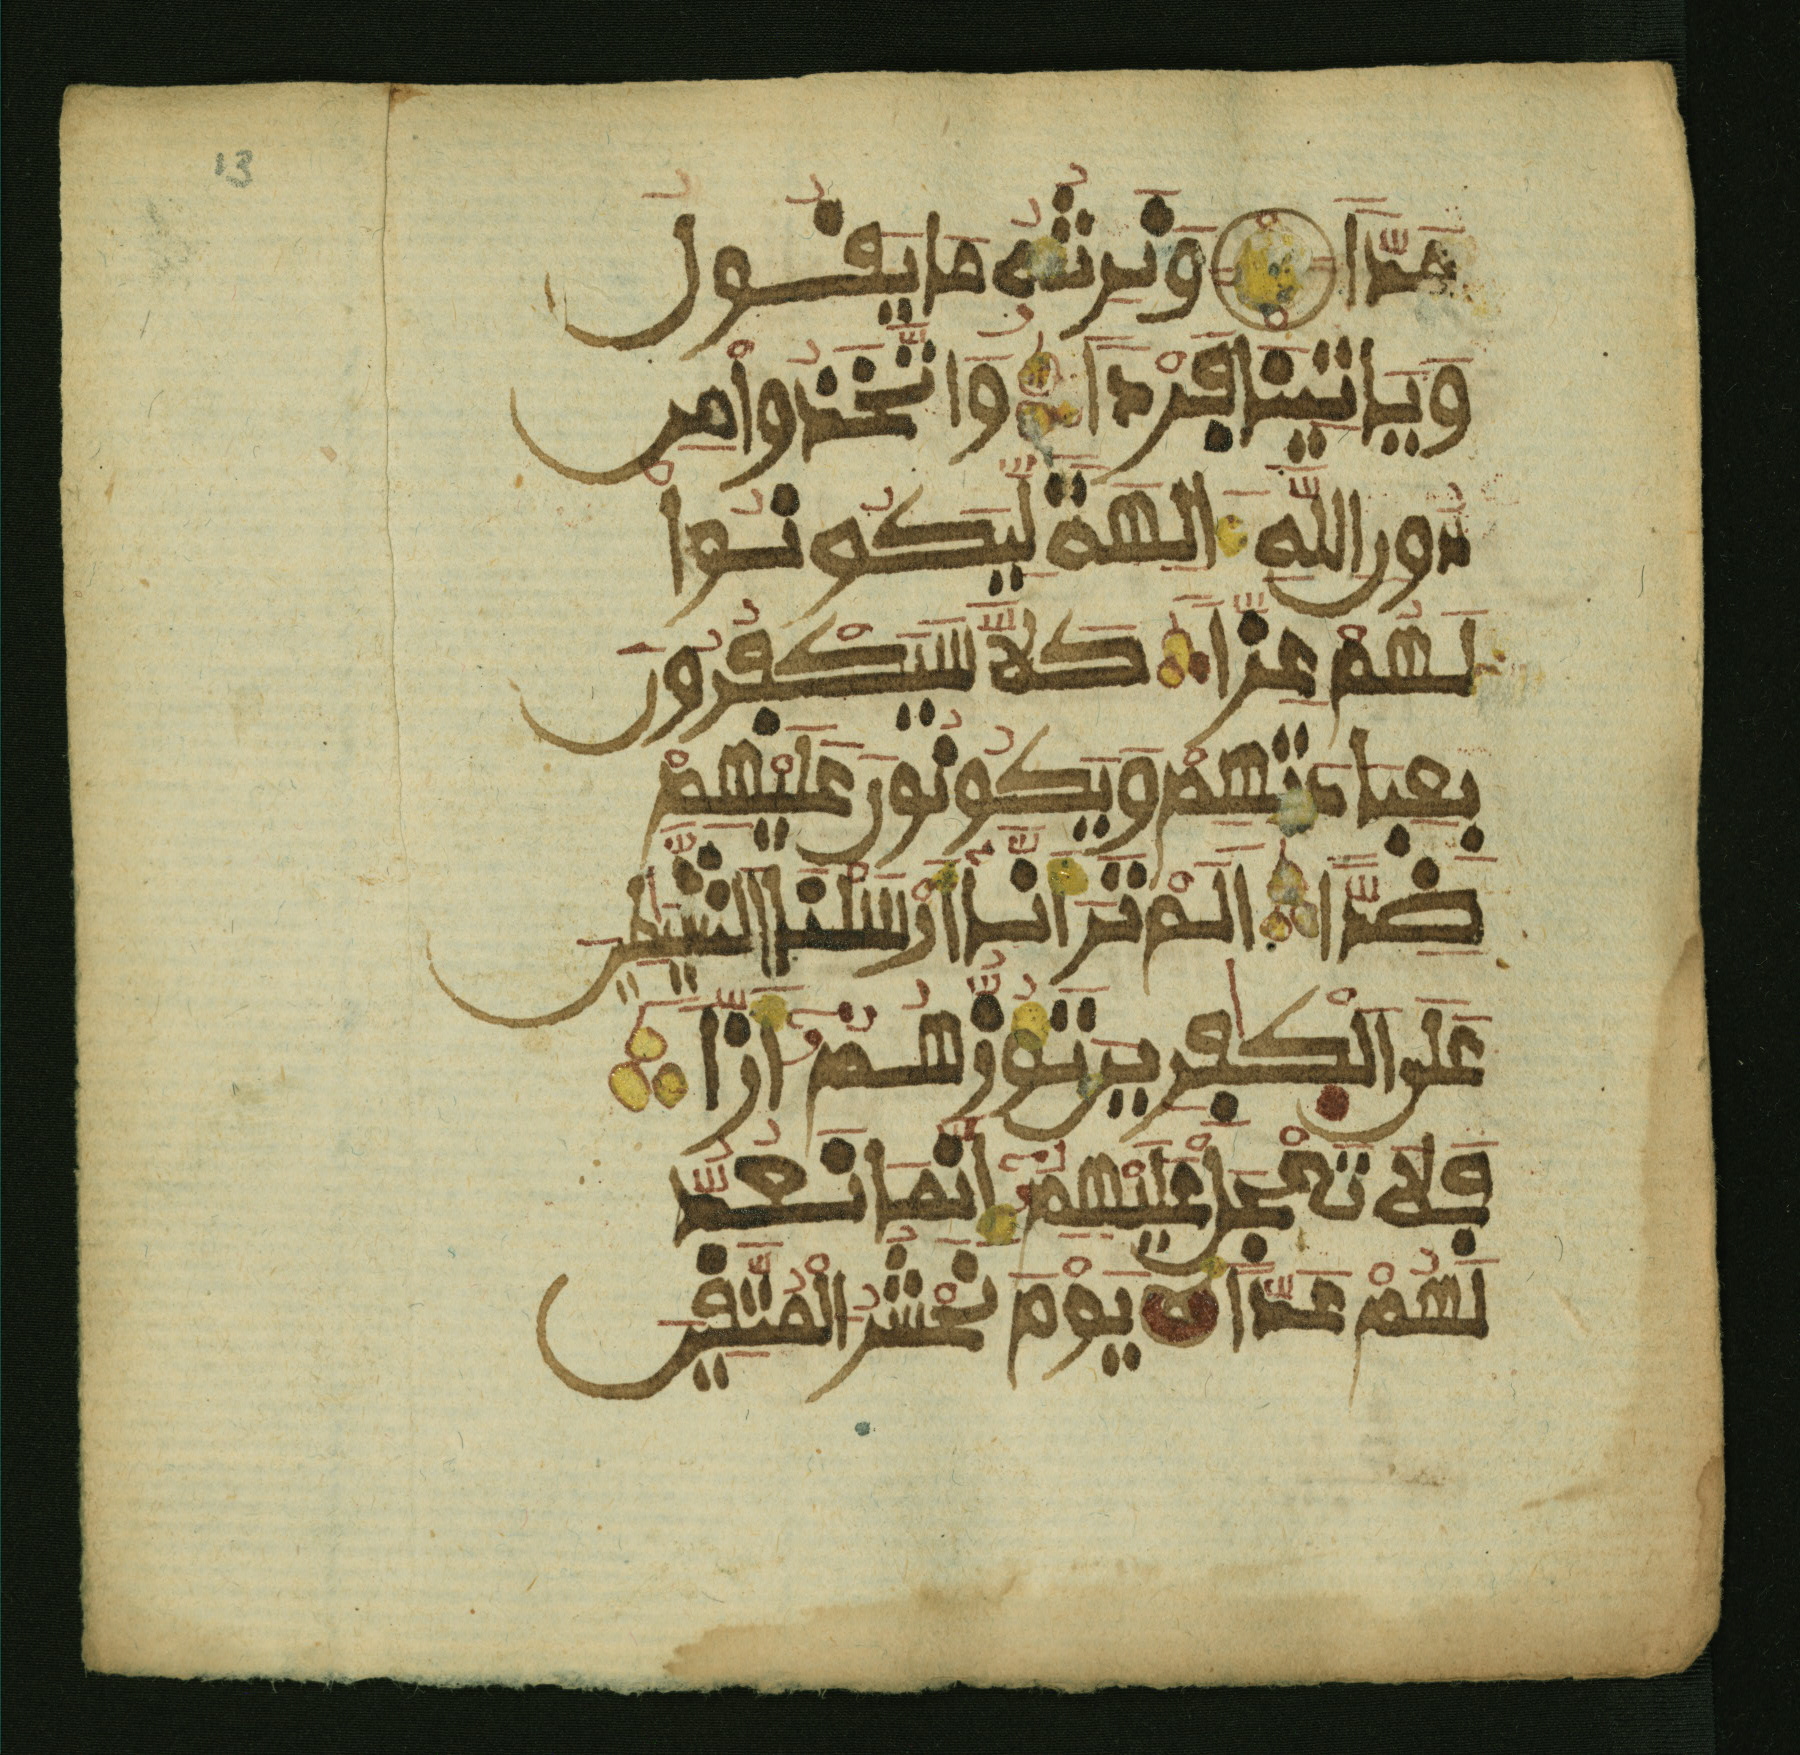 13
مَدّٗا وَنَرِثُهُ مَا يَقُولُ
وَيَاتِينَا فَرْدٗا وَاتَّخَذُواْ مِن
دُونِ اللَّهِ ءَالِهَةٗ لِّيَكُونُواْ
لَهُمْ عِزّٗا كَلَّا سَيَكْفُرُونَ
بِعِبَادَتِهِمْ وَيَكُونُونَ عَلَيْهِمْ
ضِدًّا اَلَمْ تَرَ أَنَّا أَرْسَلْنَا الشَّيَٰطِينَ
عَلَى الْكَٰفِرِينَ تَؤُزُّهُمُۥ أَزّٗا
فَلَا تَعْجَلْ عَلَيْهِمُۥ إِنَّمَا نَعُدُّ
لَهُمْ عَدّٗا يَوْمَ نَحْشُرُ الْمُتَّقِينَ